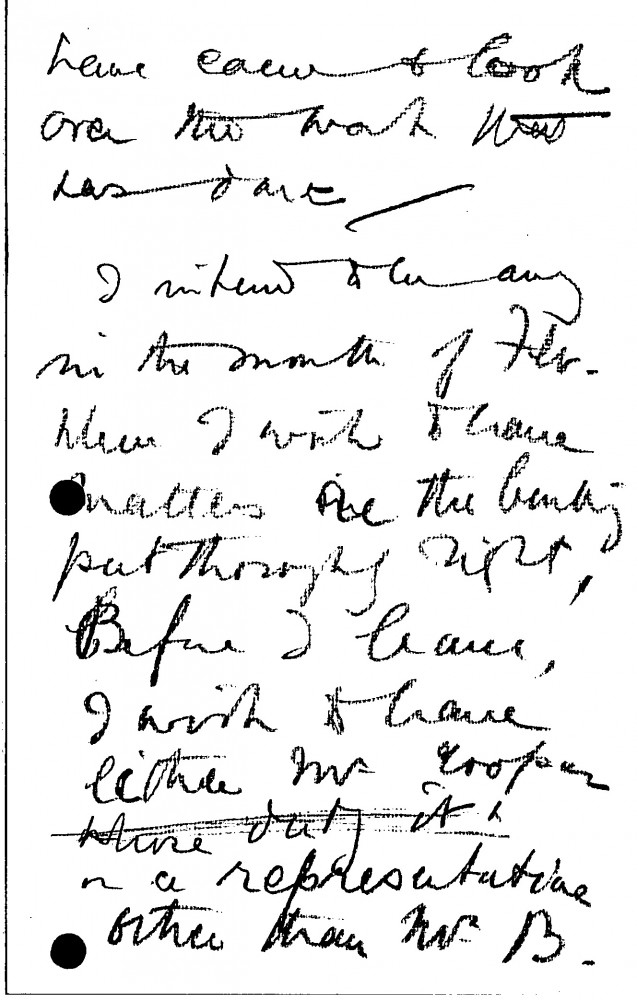 have come to look
over the work that
has done
I intend to be away
in the month of Feb.
Then I wish to have
matters in the building
put thoroughly right,
Before I leave,
I wish to have
either Mr Cooper
whose duty it is
or a representative
other than Mr B.